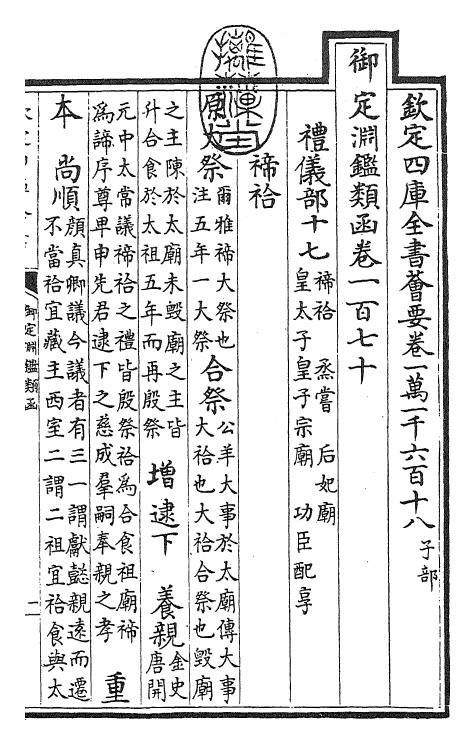 欽定四庫全書薈要卷一萬一千六百十八子部
御定淵鑑類函卷一百七十
禮儀部十七禘祫 烝嘗 后妃廟
皇太子皇子宗廟 功臣配享
禘祫
原大祭爾雅禘大祭也
注五年一大祭合祭公羊大事於太廟傳大事
大祫也大祫合祭也毀廟
之主陳於太廟未毀廟之主皆
升合食於太祖五年而再殷祭 增逮下 養親金史
唐開
元中太常議禘祫之禮皆殷祭祫為合食祖廟禘
為諦序尊卑申先君逮下之慈成羣嗣奉親之孝 重
本 尚順顔真卿議今議者有三一謂獻懿親遠而遷
不當祫宜藏主西室二謂二祖宜祫食與太
御定淵鑑類函